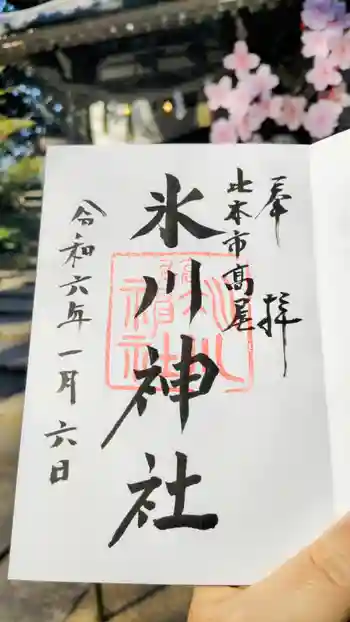 奉拝
北本市高尾
氷川神社
令和六年一月六日